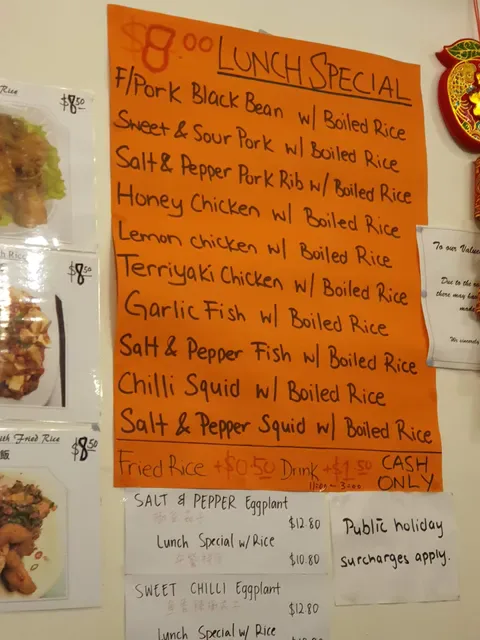 Rice
$8.50
Rice
$8.50
with Fried Rice
飯
$8.50
$8.00 LUNCH SPECIAL
F/Pork Black Bean w/ Boiled Rice
Sweet & Sour Pork w/ Boiled Rice
Salt & Pepper Pork Rib w/ Boiled Rice
Honey Chicken w/ Boiled Rice
Lemon chicken w/ Boiled Rice
Terriyaki Chicken w/ Boiled Rice
Garlic Fish w/ Boiled Rice
Salt & Pepper Fish w/ Boiled Rice
Chilli Squid w/ Boiled Rice
Salt & Pepper Squid w/ Boiled Rice
Fried Rice +$0.50 Drink +$1.50 CASH ONLY
11:00~3:00
SALT & PEPPER Eggplant
$12.80
Lunch Special w/Rice
$10.80
SWEET CHILLI Eggplant
$12.80
Lunch Special w/Rice
Public holiday
surcharges apply.
To our Valu
Due to the
there may ha
made
We sincerely